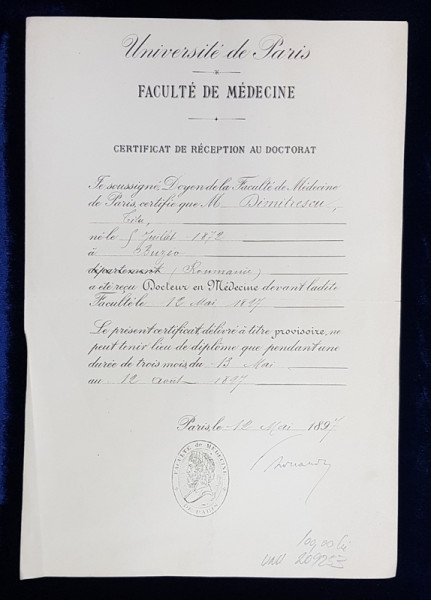 Université de Paris
FACULTÉ DE MÉDECINE
CERTIFICAT DE RÉCEPTION AU DOCTORAT
Je soussigné, Doyen de la Faculté de Médecine
de Paris, certifie que M Dimitrescu,
Titu,
né le 5 Juillet 1872
à Buzeo
département (Roumanie)
a été reçu Docteur en Médecine devant ladite
Faculté le 12 Mai 1897
Le présent certificat, délivré à titre provisoire, ne
peut tenir lieu de diplôme que pendant une
durée de trois mois, du 13 Mai
au 12 Août 1897
Paris, le 12 Mai 1897
FACULTÉ DE MÉDECINE
DE PARIS
209253